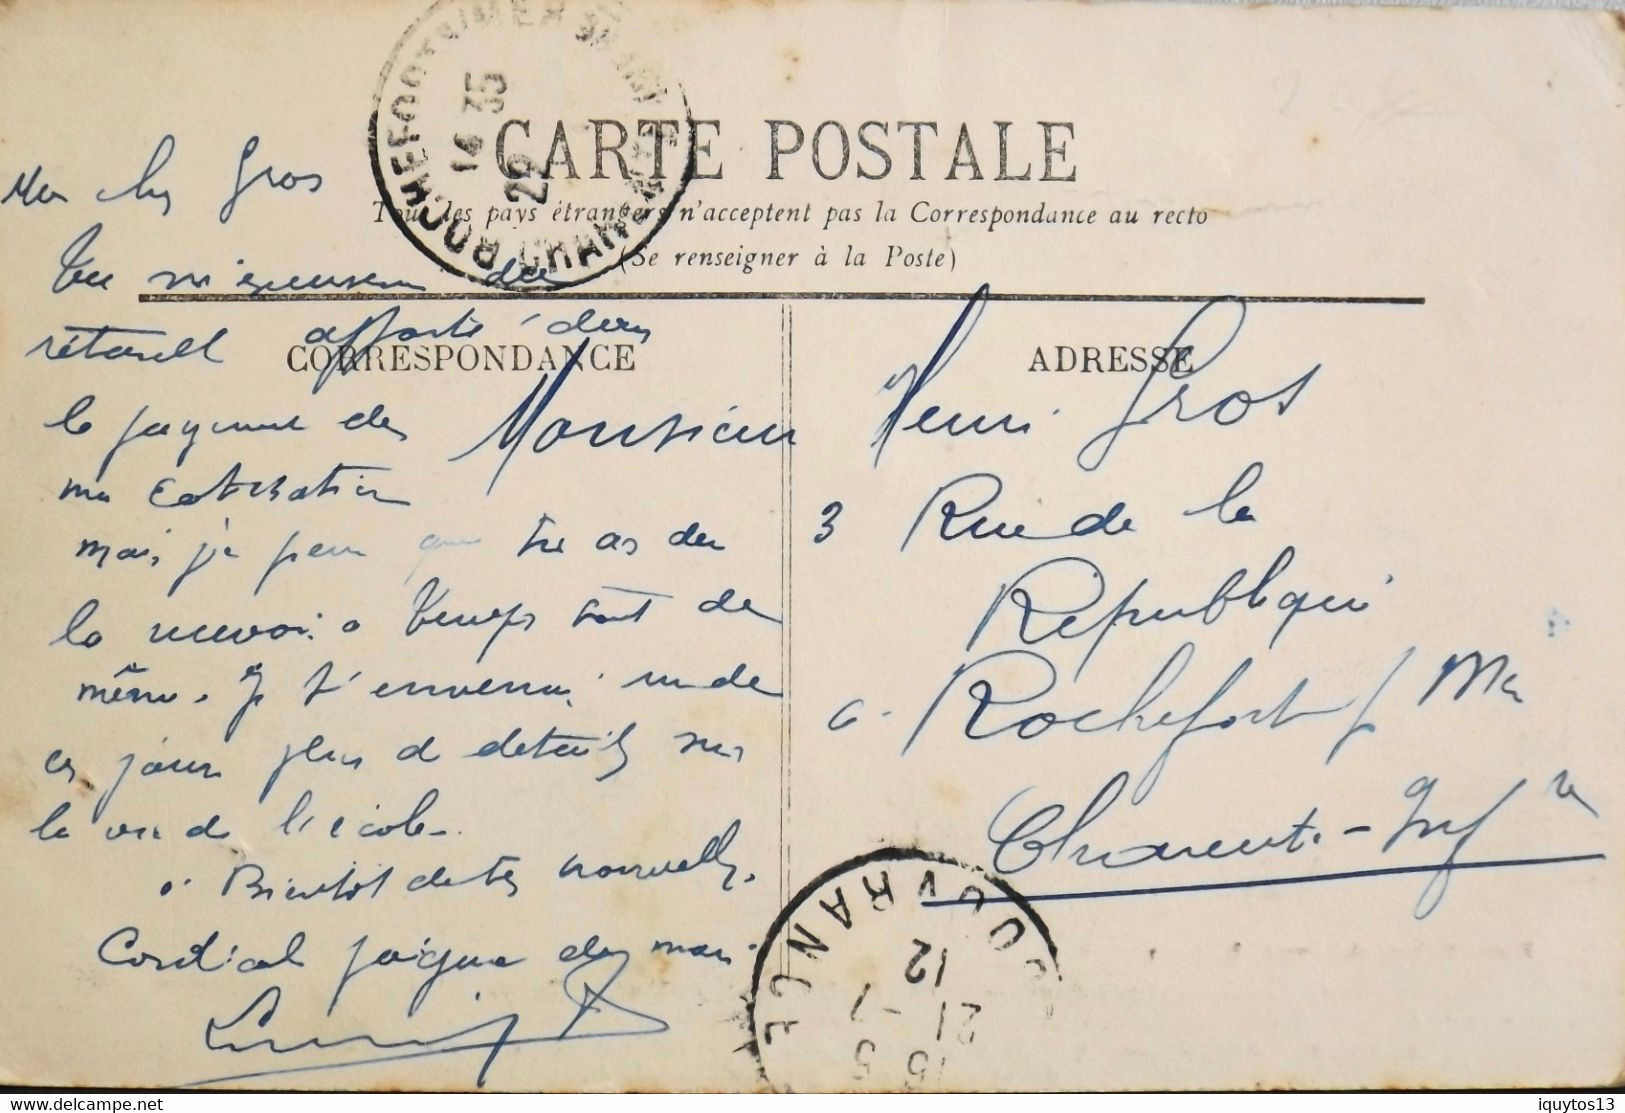 CARTE POSTALE
Tous les pays étrangers n'acceptent pas la Correspondance au recto
(Se renseigner à la Poste)
CORRESPONDANCE
ADRESSE
Mon cher Gros
Tu m'excuseras du
retard apporté dans
le payement de
ma cotisation
mais je pense que tu as du
la recevoir à temps tout de
même. Je t'enverrai un de
ces jours plus de details sur
la vie de l'école.
à Bientôt de tes nouvelles.
Cordiale poignée de main
Monsieur Henri Gros
3 Rue de la
République
à Rochefort s/ Mer
Charente-Infre
ROCHEFORT S/MER
14 35
22
12
21 -1
15 5
iquytos13